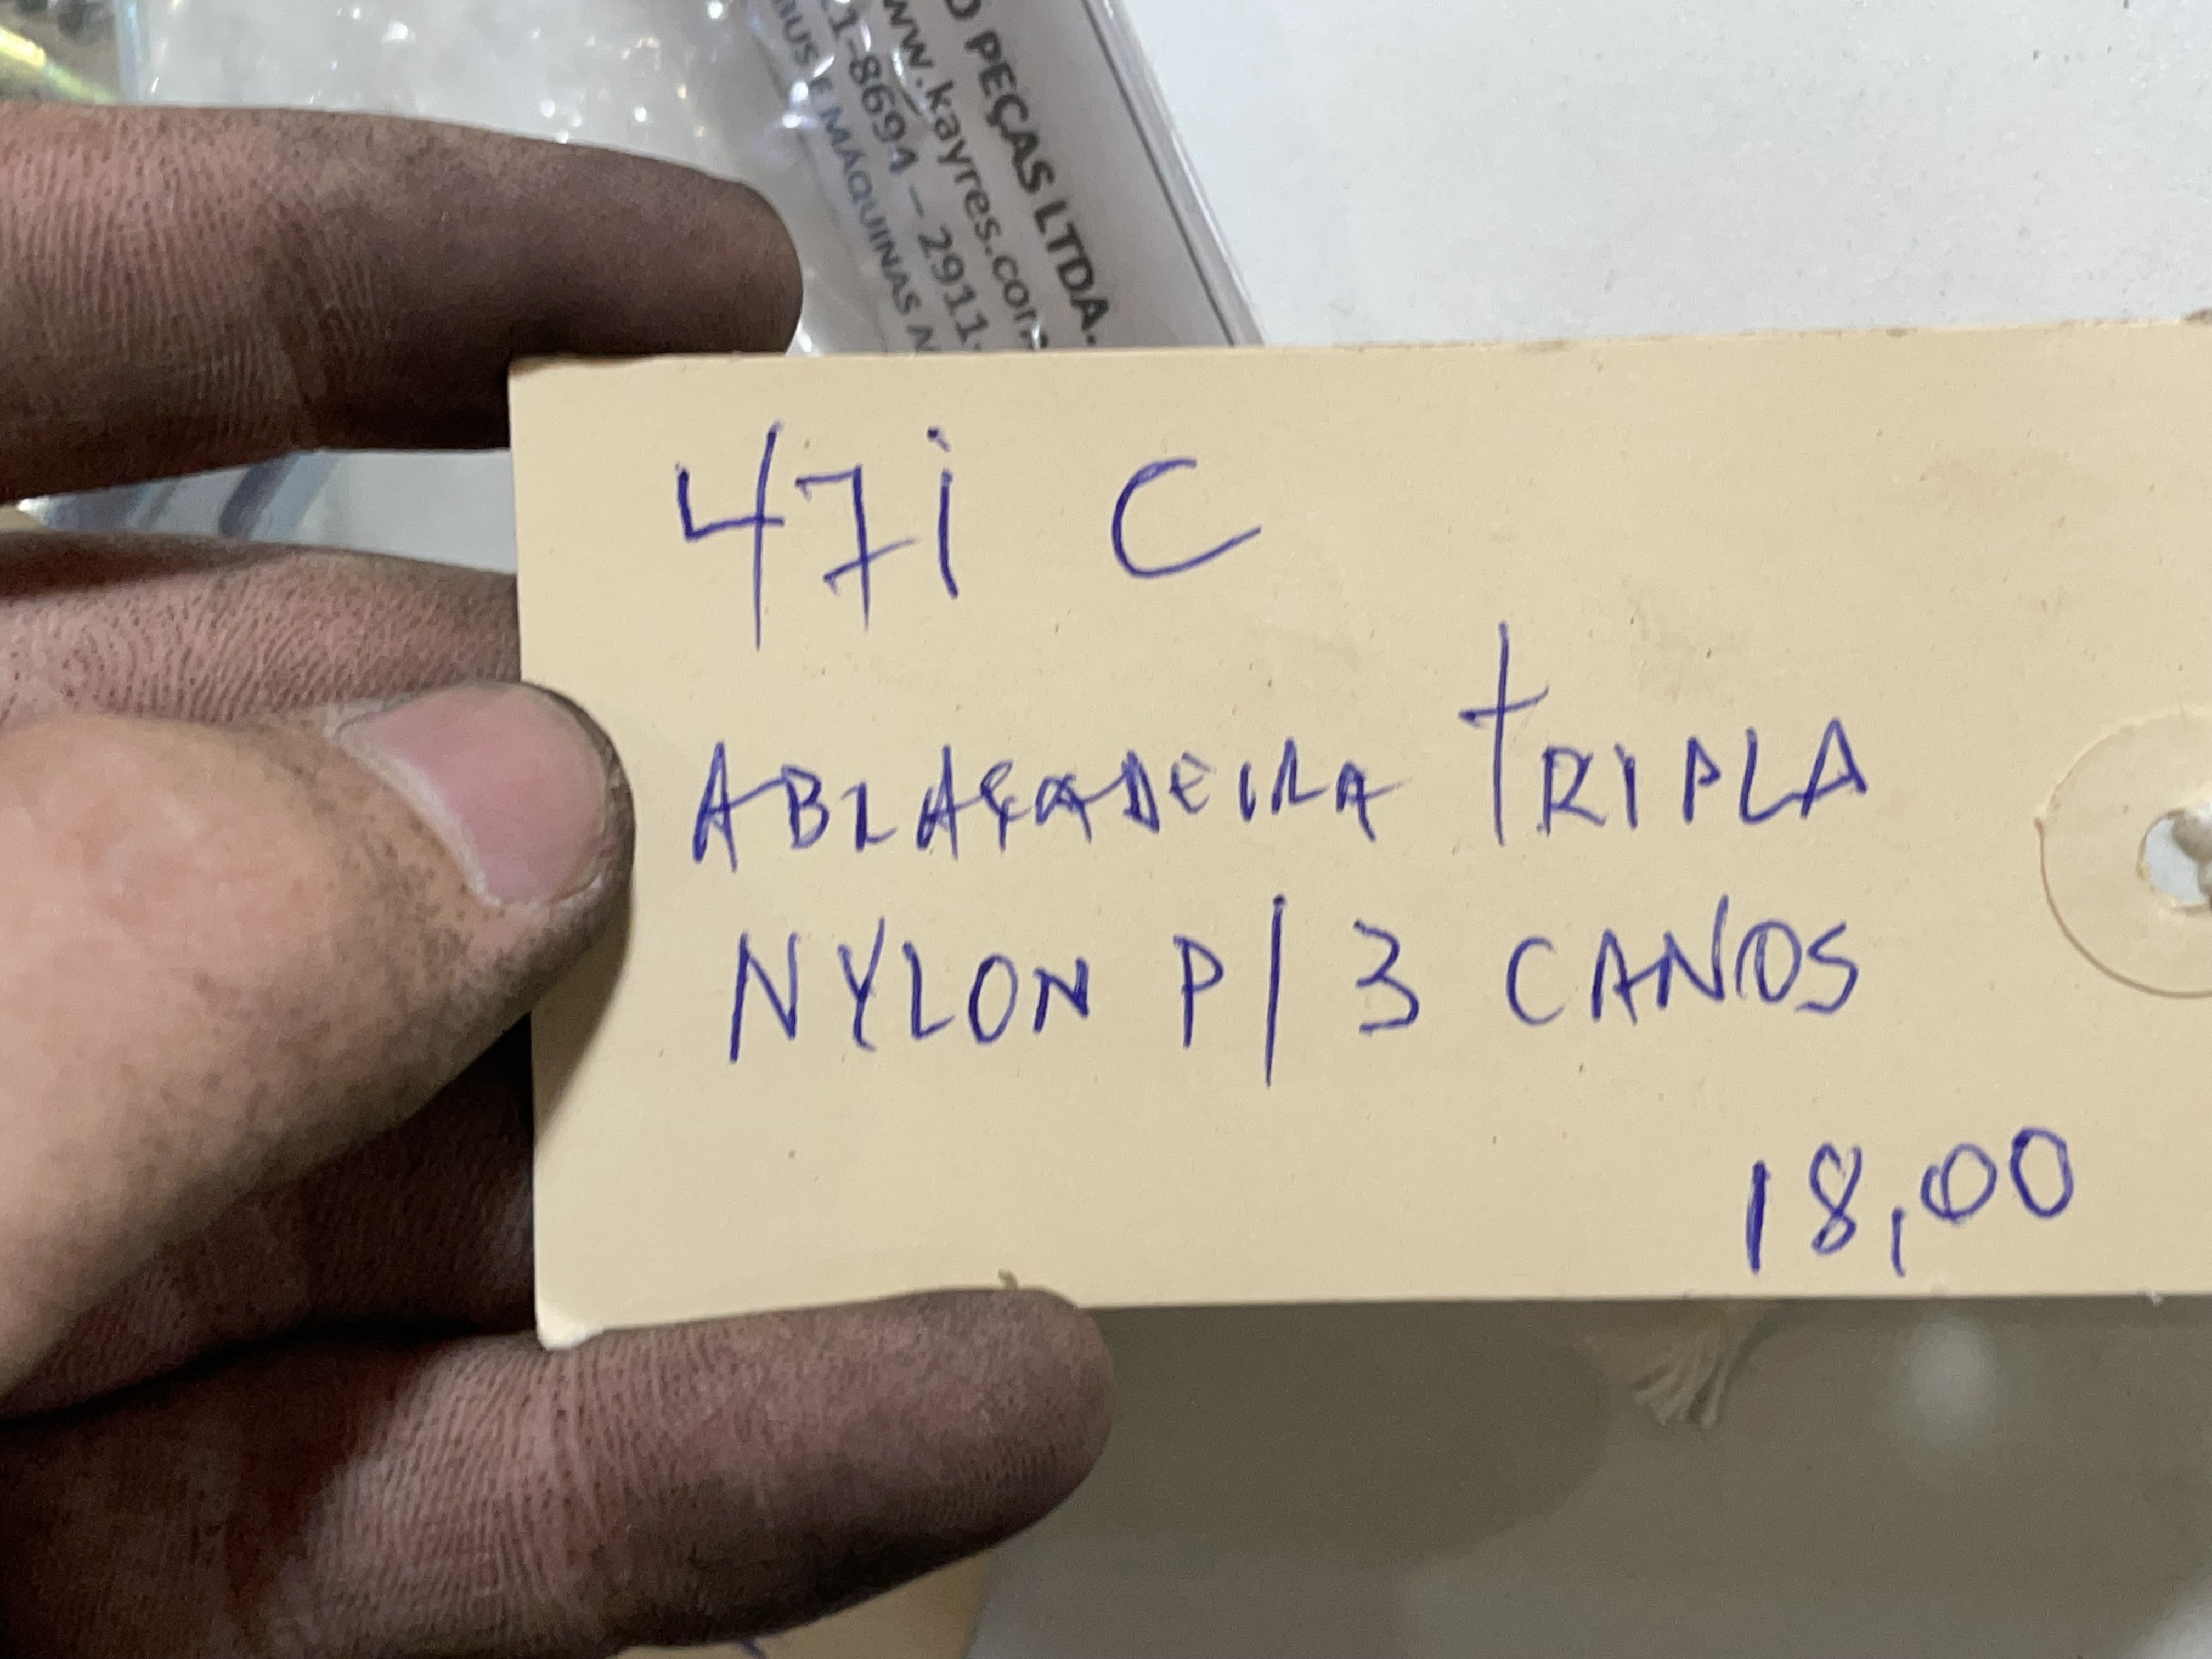 47i C
ABLAÇADEIRA TRIPLA
NYLON P/ 3 CANOS
18,00
PEÇAS LTDA.
www.kayres.com
1-8694 – 2911-
BUS E MÁQUINAS